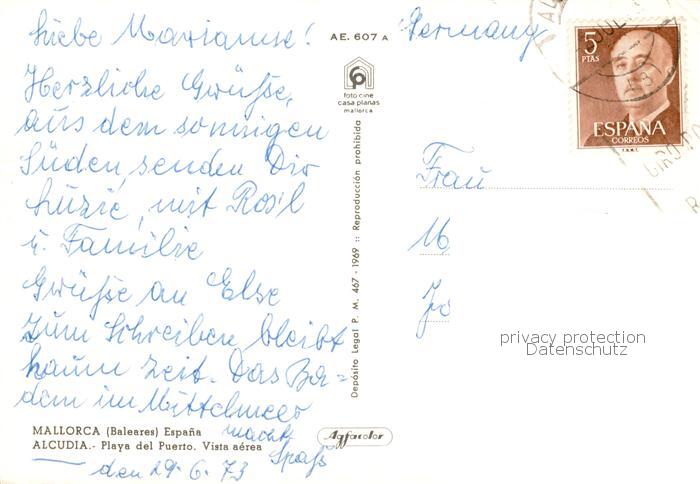 Liebe Marianne!
Herzliche Grüße,
aus dem sonnigen
Süden, senden Dir
Luzie, mit Rosl
u. Familie
Grüße an Else
zum Schreiben bleibt
kaum Zeit. Das Ba=
dem im Mittelmeer
macht
Spaß
den 29.6.73
MALLORCA (Baleares) España
ALCUDIA.- Playa del Puerto. Vista aérea
AE. 607 A
foto cine
casa planas
mallorca
Depósito Legal P. M. 467 - 1969 :: Reproducción prohibida
Agfacolor
Germany
5
PTAS
ESPAÑA
CORREOS
F.N.M.T.
Frau
M
Jo
privacy protection
Datenschutz